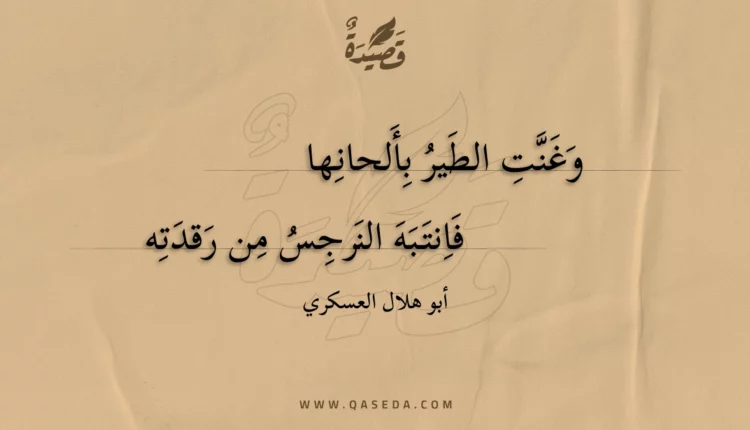 قَصِيْدَةٌ
وَغَنَّتِ الطَيرُ بِأَلحانِها
فَاِنتَبَهَ النَرجِسُ مِن رَقدَتِه
أبو هلال العسكري
WWW.QASEDA.COM